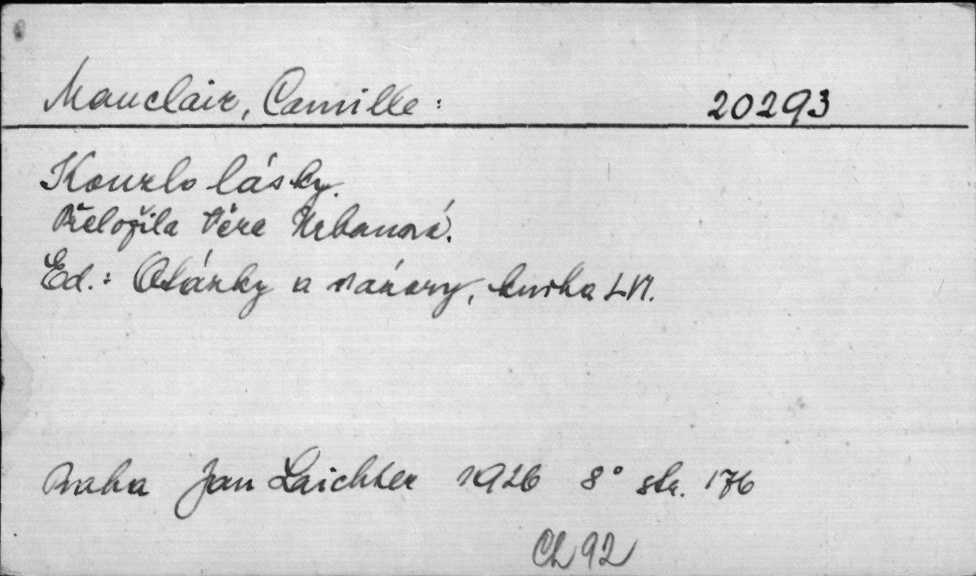 Mauclair, Camille: 20293
Kouzlo lásky.
Přeložila Věra Urbanová.
Ed.: Otázky a názory, kniha LVI.
Praha Jan Laichter 1926 8° str. 176
Ch 92